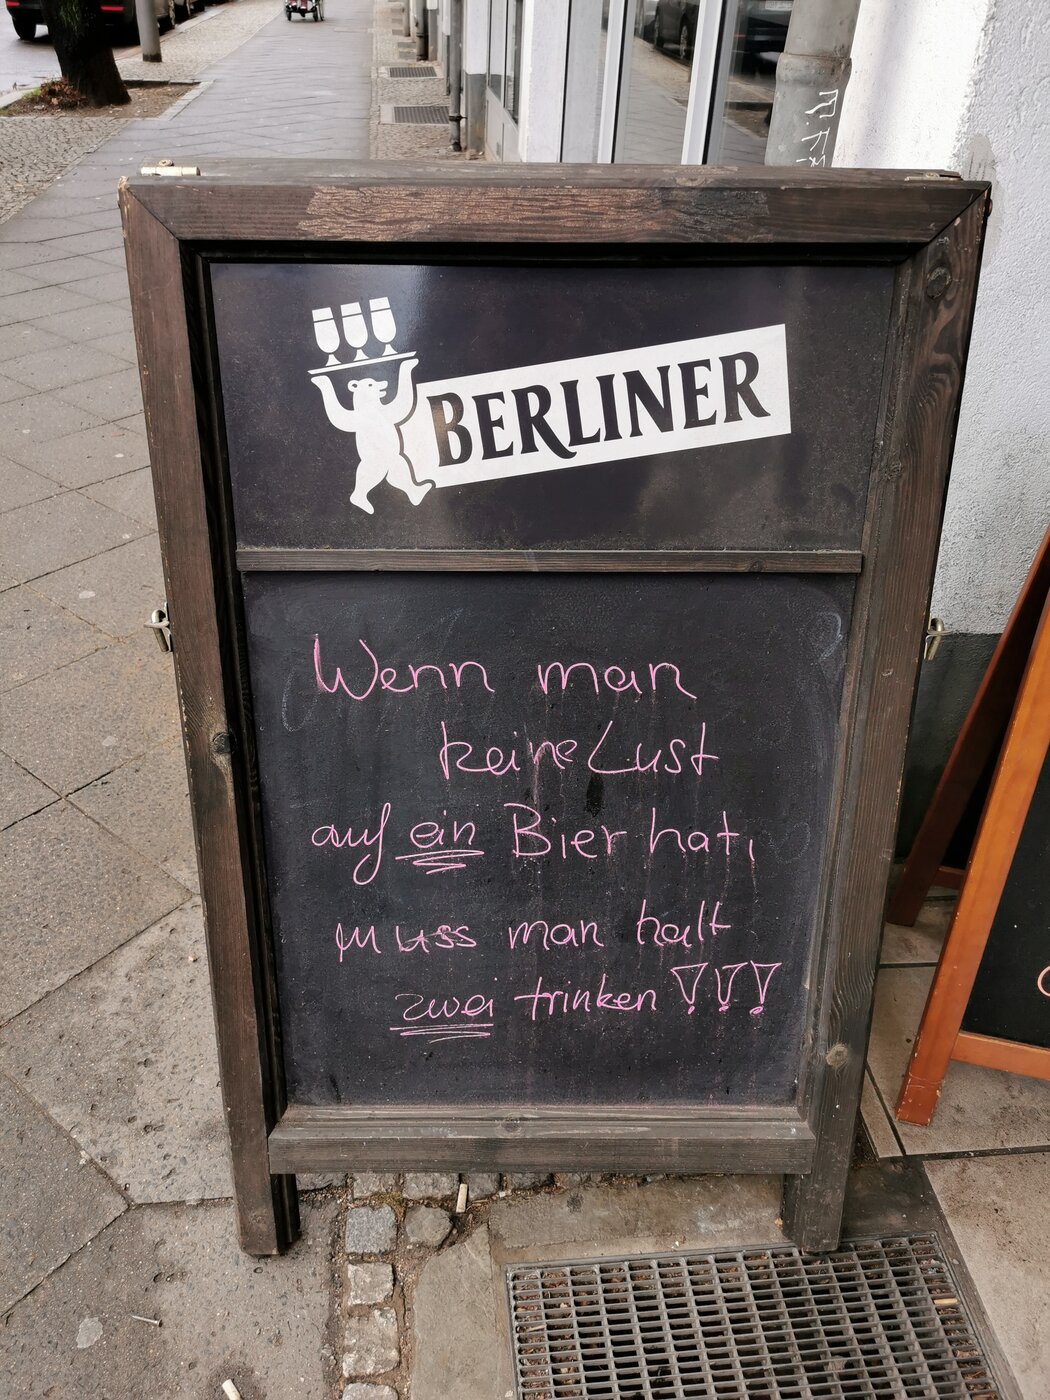 BERLINER
Wenn man
keine Lust
auf ein Bier hat,
muss man halt
zwei trinken !!!